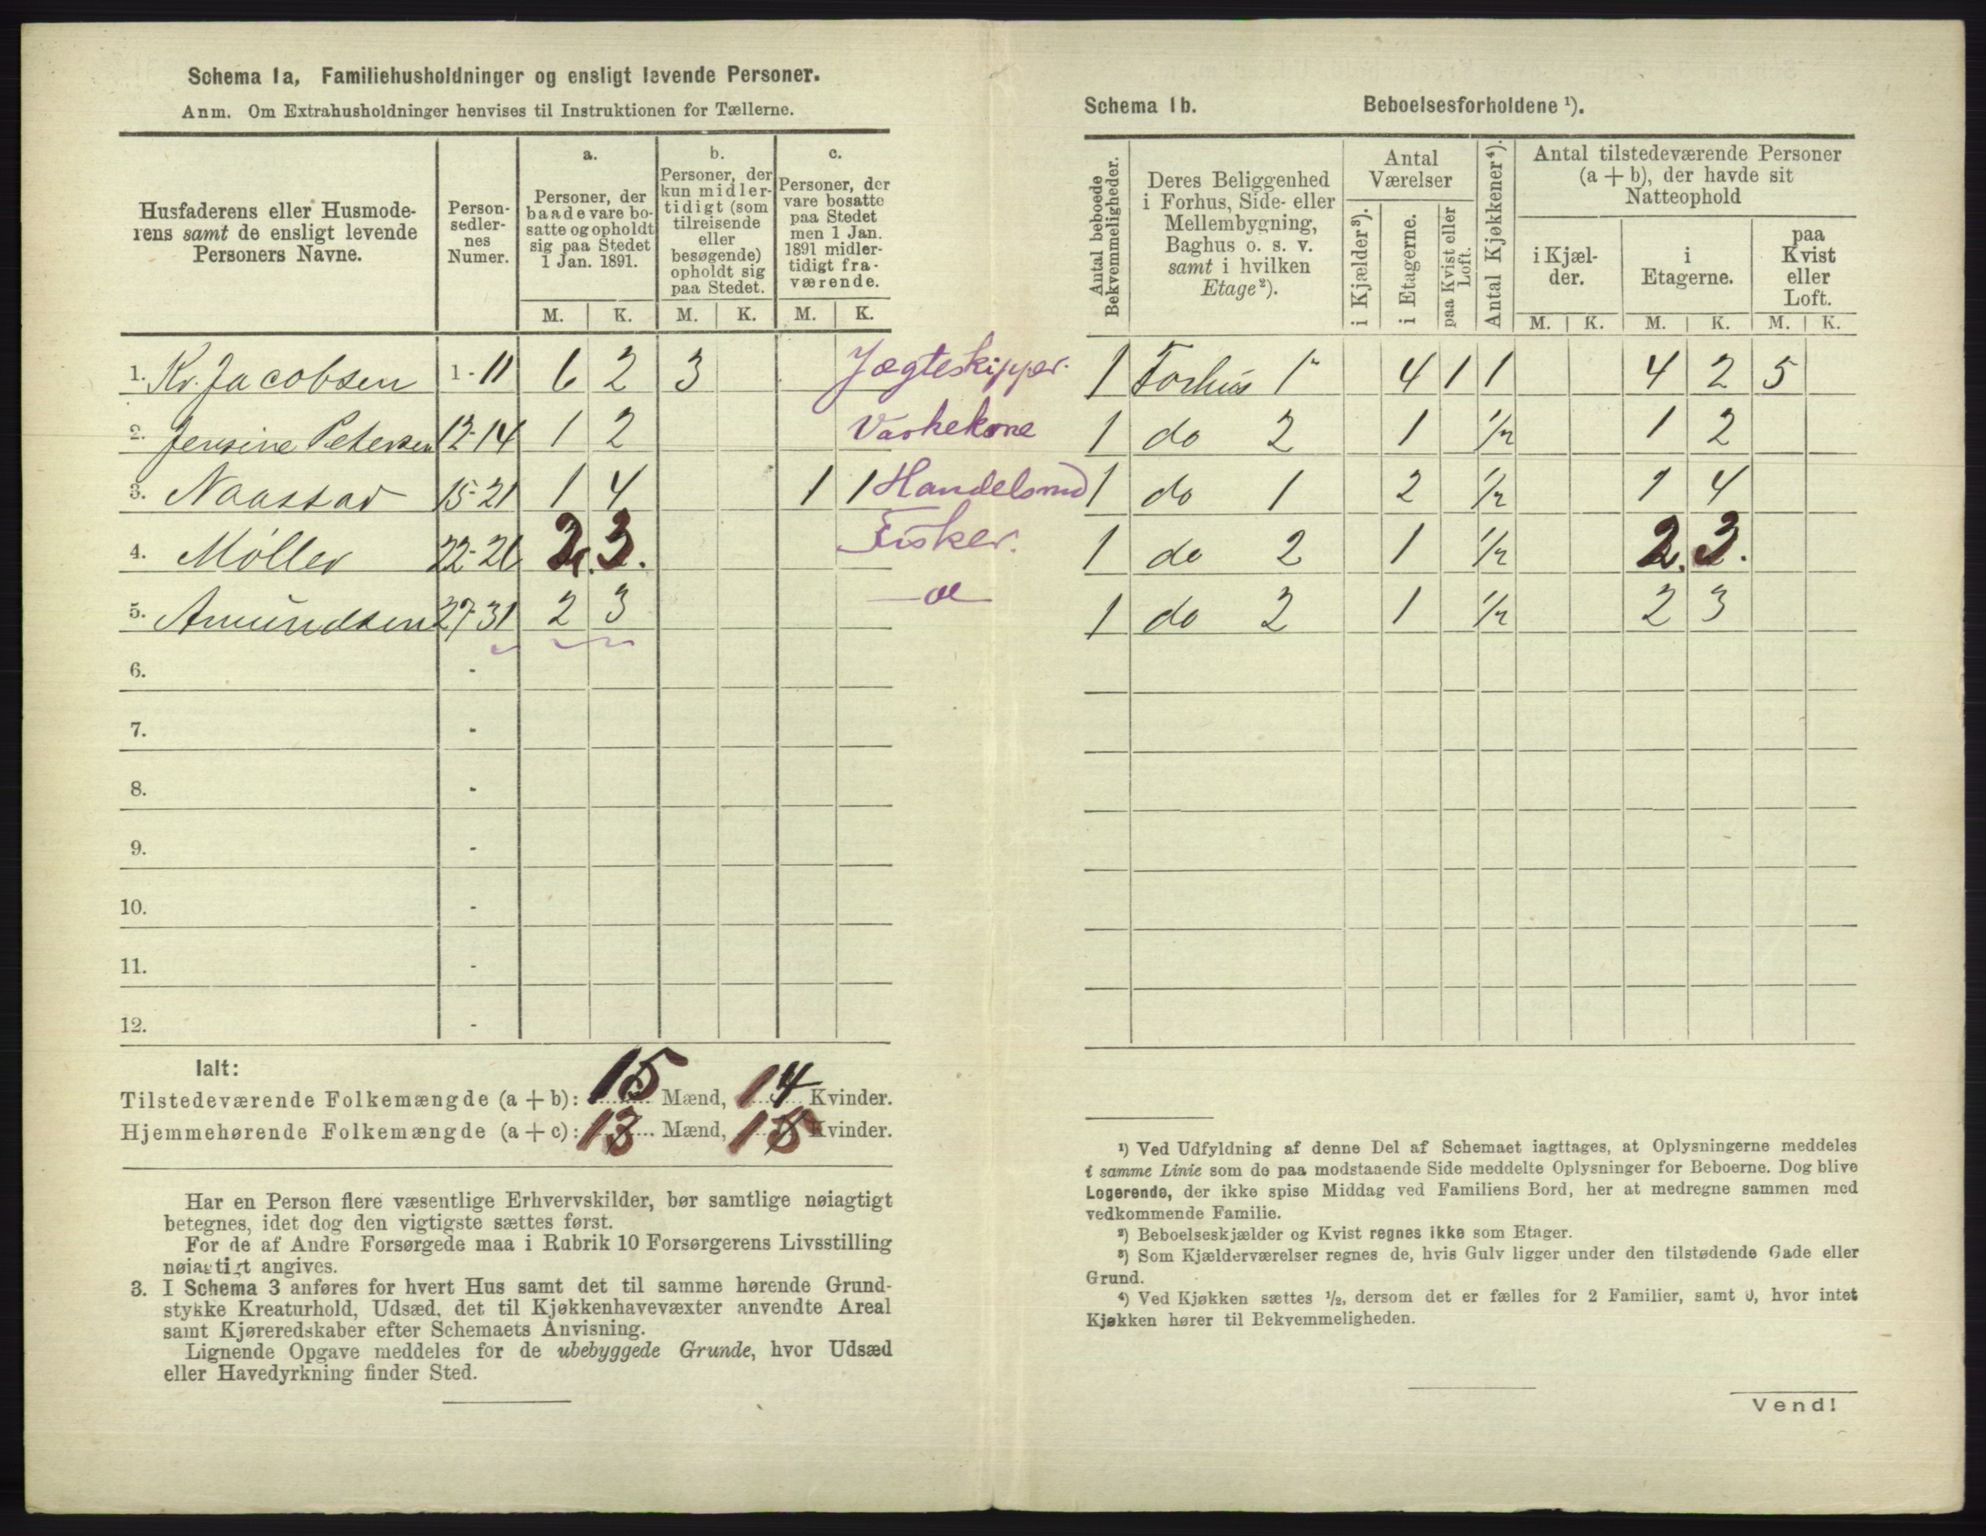 Schema 1a, Familiehusholdninger og ensligt levende Personer.
Anm. Om Extrahusholdninger henvises til Instruktionen for Tællerne.
Husfaderens eller Husmoderens samt de ensligt levende Personers Navne.
Personsedlernes Numer.
a. Personer, der baade vare bosatte og opholdt sig paa Stedet 1 Jan. 1891.
b. Personer, der kun midlertidigt (som tilreisende eller besøgende) opholdt sig paa Stedet.
c. Personer, der vare bosatte paa Stedet men 1 Jan. 1891 midlertidigt fraværende.
M. K. M. K. M. K.
1. Kr. Jacobsen 1-11 6 2 3 Jægteskipper.
2. Jensine Petersen 12-14 1 2 Vaskekone
3. Naasstad 15-21 1 4 1 1 Handelsmd
4. Møller 22-26 2. 3. Fisker.
5. Amundsen 27-31 2 3 — " —
6. -
7. -
8. -
9. -
10. -
11. -
12. -
Ialt:
Tilstedeværende Folkemængde (a + b): 15 Mænd, 14 Kvinder.
Hjemmehørende Folkemængde (a + c): 13 Mænd, 15 Kvinder.
Har en Person flere væsentlige Erhvervskilder, bør samtlige nøiagtigt
betegnes, idet dog den vigtigste sættes først.
For de af Andre Forsørgede maa i Rubrik 10 Forsørgerens Livsstilling
nøiagtigt angives.
3. I Schema 3 anføres for hvert Hus samt det til samme hørende Grund-
stykke Kreaturhold, Udsæd, det til Kjøkkenhavevæxter anvendte Areal
samt Kjøreredskaber efter Schemaets Anvisning.
Lignende Opgave meddeles for de ubebyggede Grunde, hvor Udsæd
eller Havedyrkning finder Sted.
Schema 1b. Beboelsesforholdene ¹).
Antal beboede Bekvemmeligheder.
Deres Beliggenhed i Forhus, Side- eller Mellembygning, Baghus o. s. v. samt i hvilken Etage ²).
Antal Værelser
i Kjælder ³).
i Etagerne.
paa Kvist eller Loft.
Antal Kjøkkener ⁴).
Antal tilstedeværende Personer (a + b), der havde sit Natteophold
i Kjælder.
i Etagerne.
paa Kvist eller Loft.
M. K. M. K. M. K.
1 Forhus 1 4 1 1 4 2 5
1 do 2 1 ½ 1 2
1 do 1 2 ½ 1 4
1 do 2 1 ½ 2. 3.
1 do 2 1 ½ 2 3
¹) Ved Udfyldning af denne Del af Schemaet iagttages, at Oplysningerne meddeles
i samme Linie som de paa modstaaende Side meddelte Oplysninger for Beboerne. Dog blive
Logerende, der ikke spise Middag ved Familiens Bord, her at medregne sammen med
vedkommende Familie.
²) Beboelseskjælder og Kvist regnes ikke som Etager.
³) Som Kjælderværelser regnes de, hvis Gulv ligger under den tilstødende Gade eller
Grund.
⁴) Ved Kjøkken sættes ½, dersom det er fælles for 2 Familier, samt 0, hvor intet
Kjøkken hører til Bekvemmeligheden.
Vend!